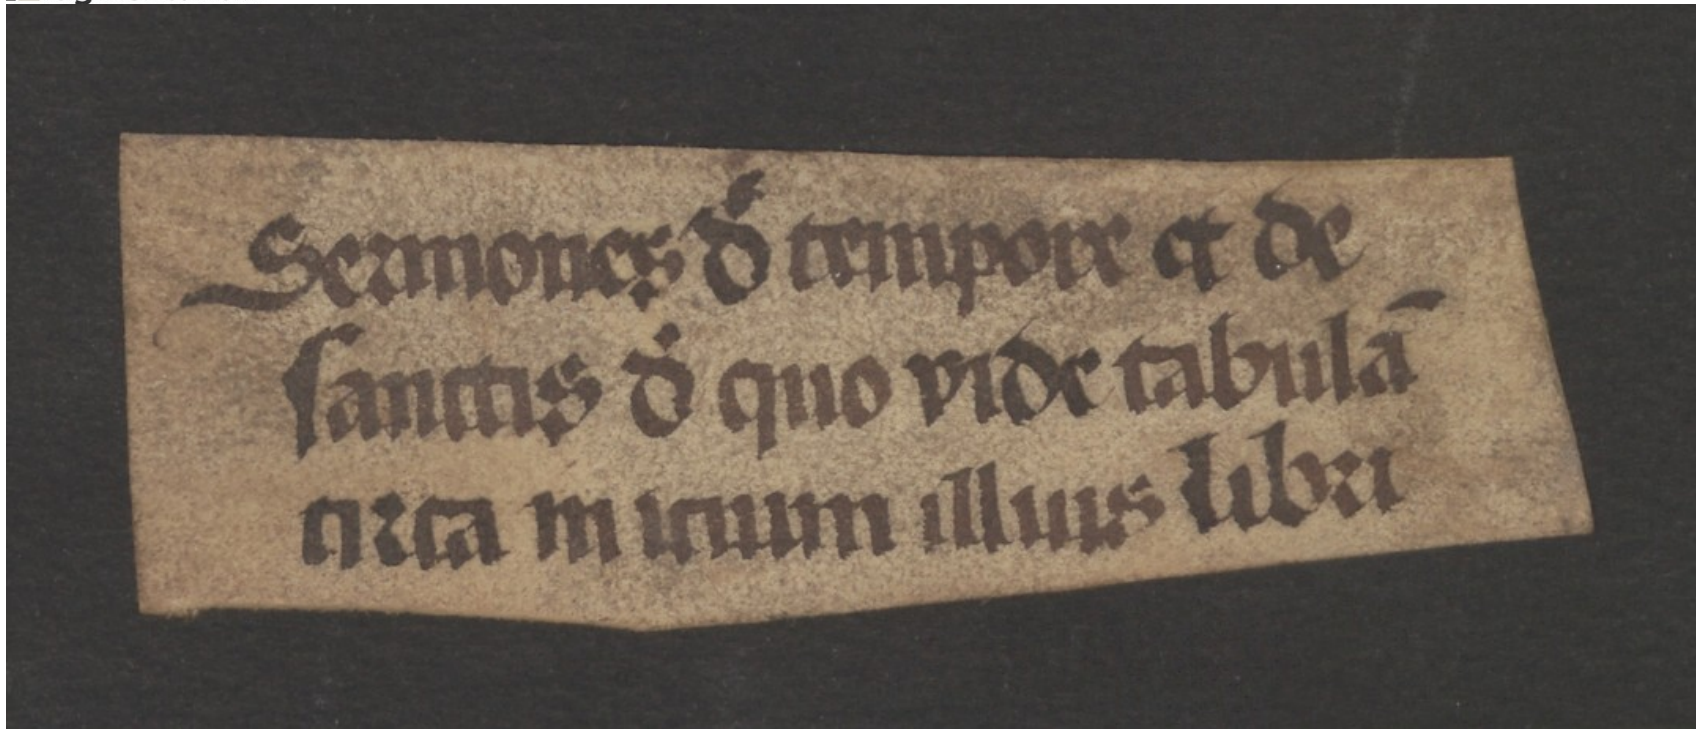 Sermones đ tempore et de
sanctis đ quo vide tabulā
circa in icium illius libri